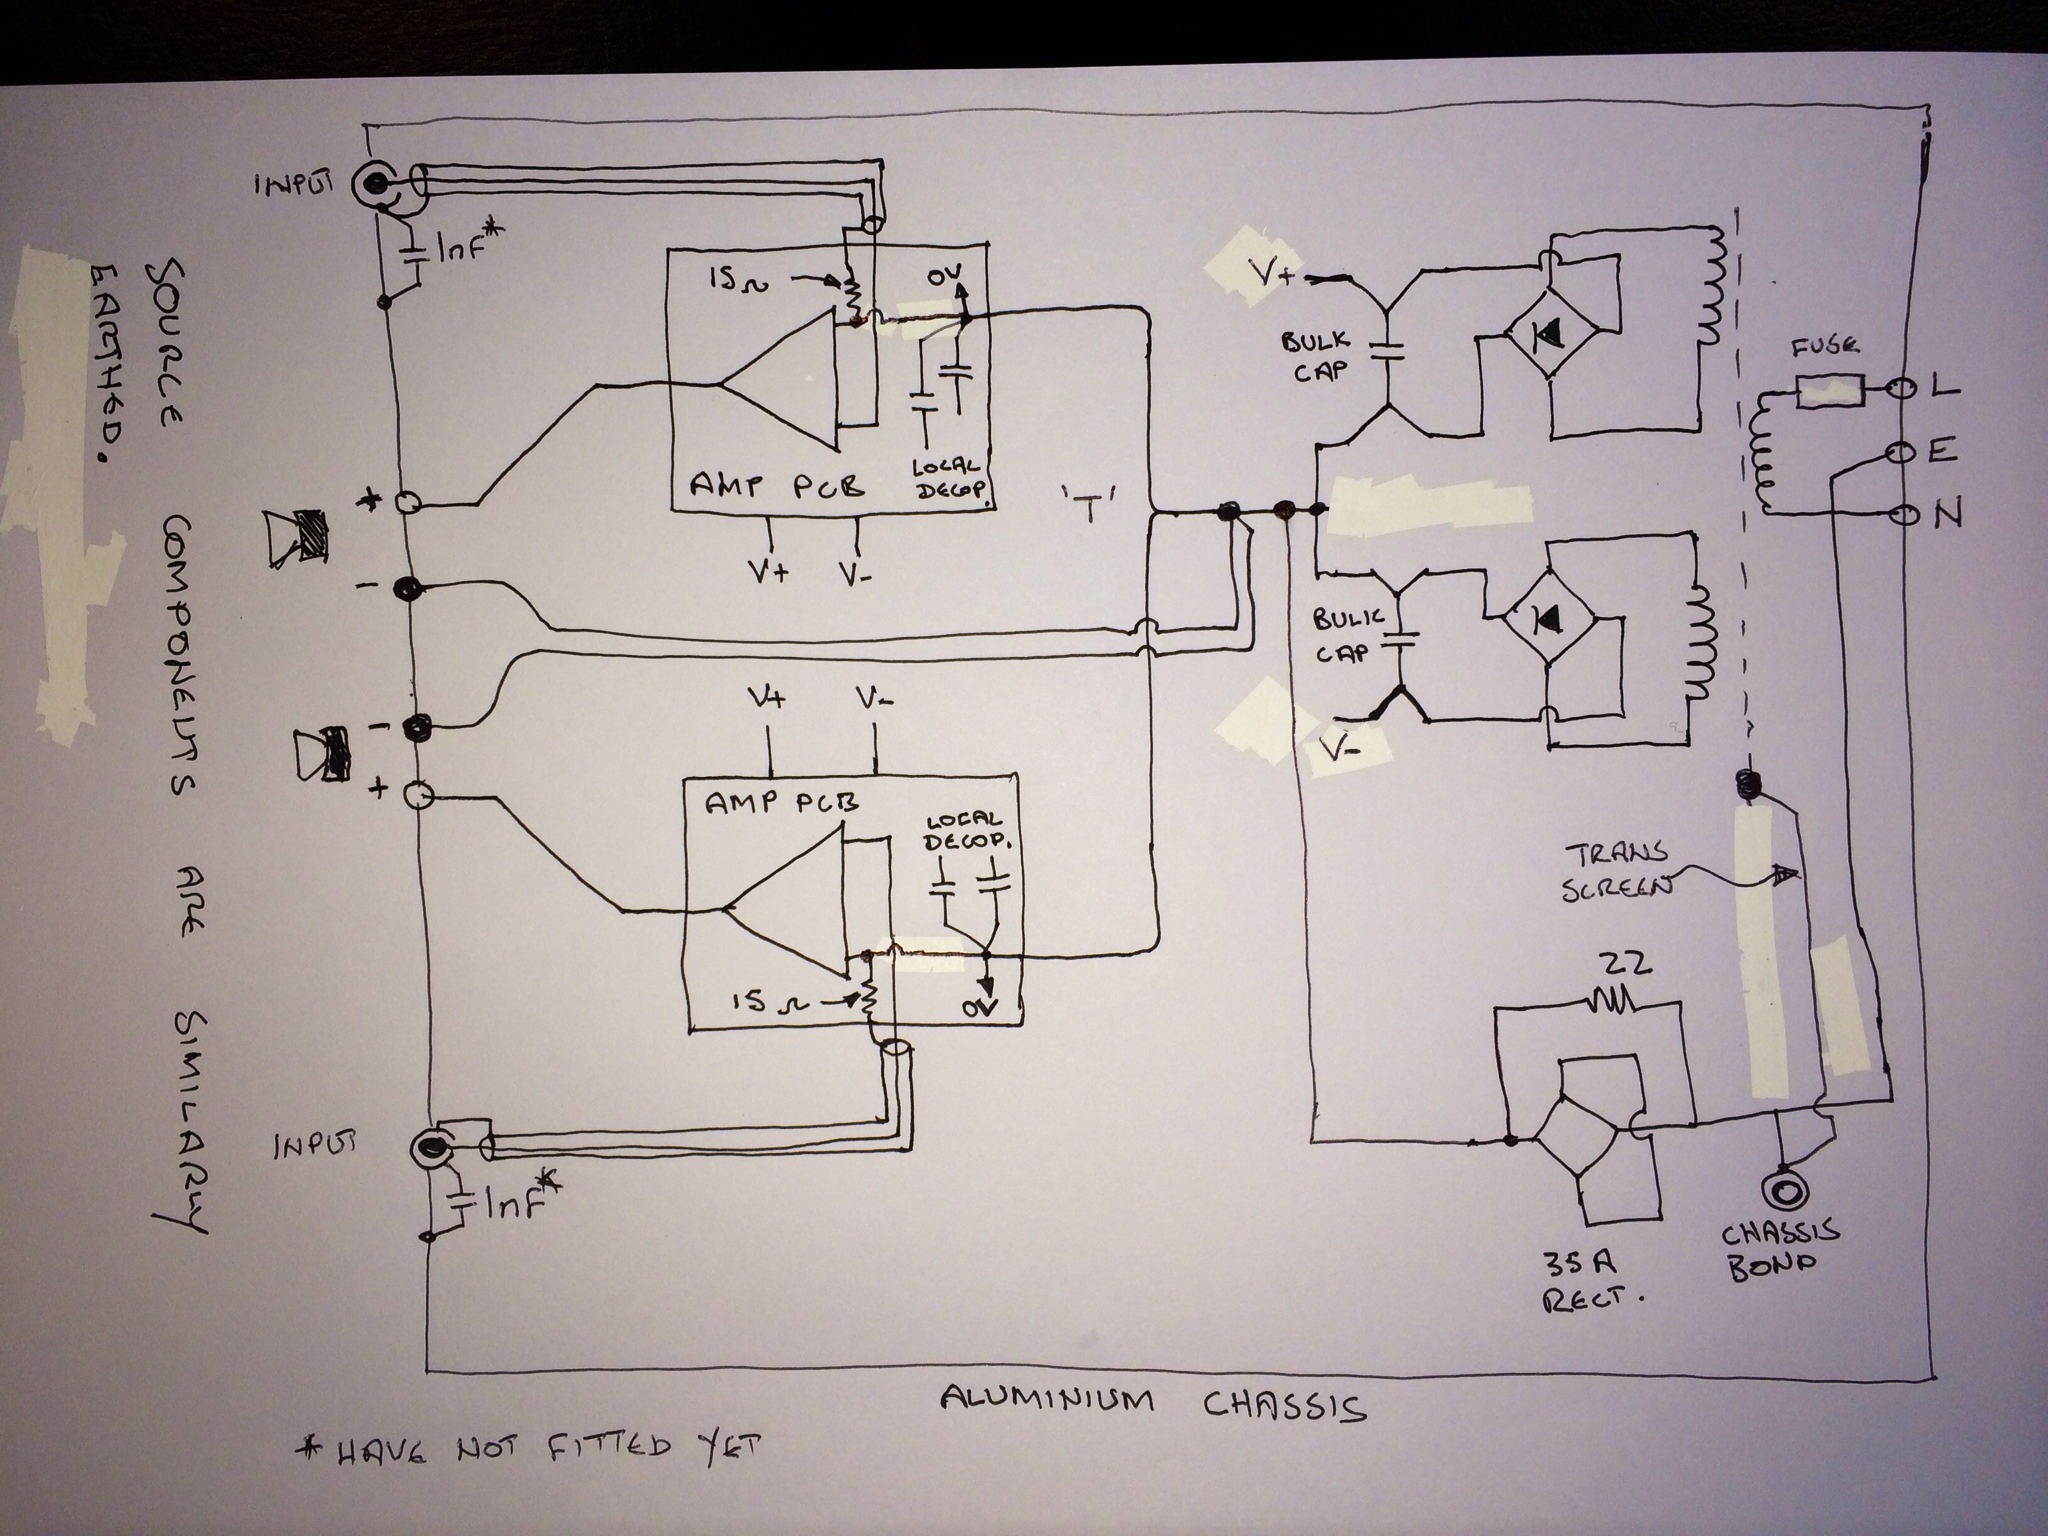 INPUT
1nF*
SOURCE COMPONENTS ARE SIMILARLY
EARTHED.
15Ω
0V
LOCAL
DECOP.
AMP PCB
V+ V-
+
-
-
+
V+ V-
AMP PCB
LOCAL
DECOP.
15Ω
0V
INPUT
1nF*
'T'
V+
BULK
CAP
BULK
CAP
V-
FUSE
L
E
N
TRANS
SCREEN
22
35A
RECT.
CHASSIS
BOND
ALUMINIUM CHASSIS
* HAVE NOT FITTED YET